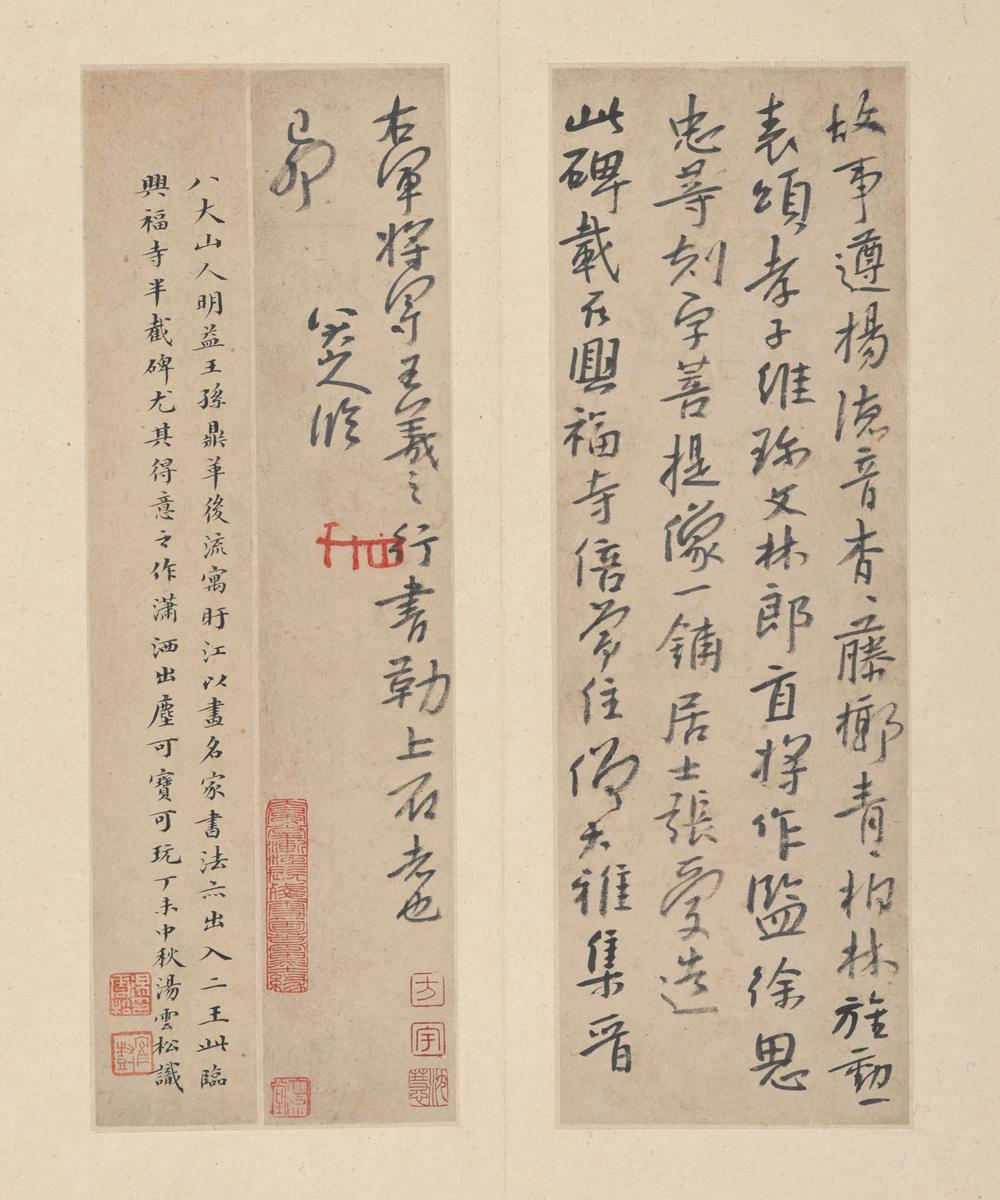 故事遵揚德音杳々藤槨青々柏林旌勳
表頌孝子維珍文林郎直將作監徐思
忠等刻字菩提像一鋪居士張愛造
此碑載在興福寺倍常住僧大雅集晉
右軍將軍王羲之行書勒上石者也
己卯
八大山人臨
方
宇
沈慧
八大山人明益王孫鼎革後流寓盱江以畫名家書法亦出入二王此臨
興福寺半截碑尤其得意之作瀟洒出塵可寶可玩丁未中秋湯雲松識